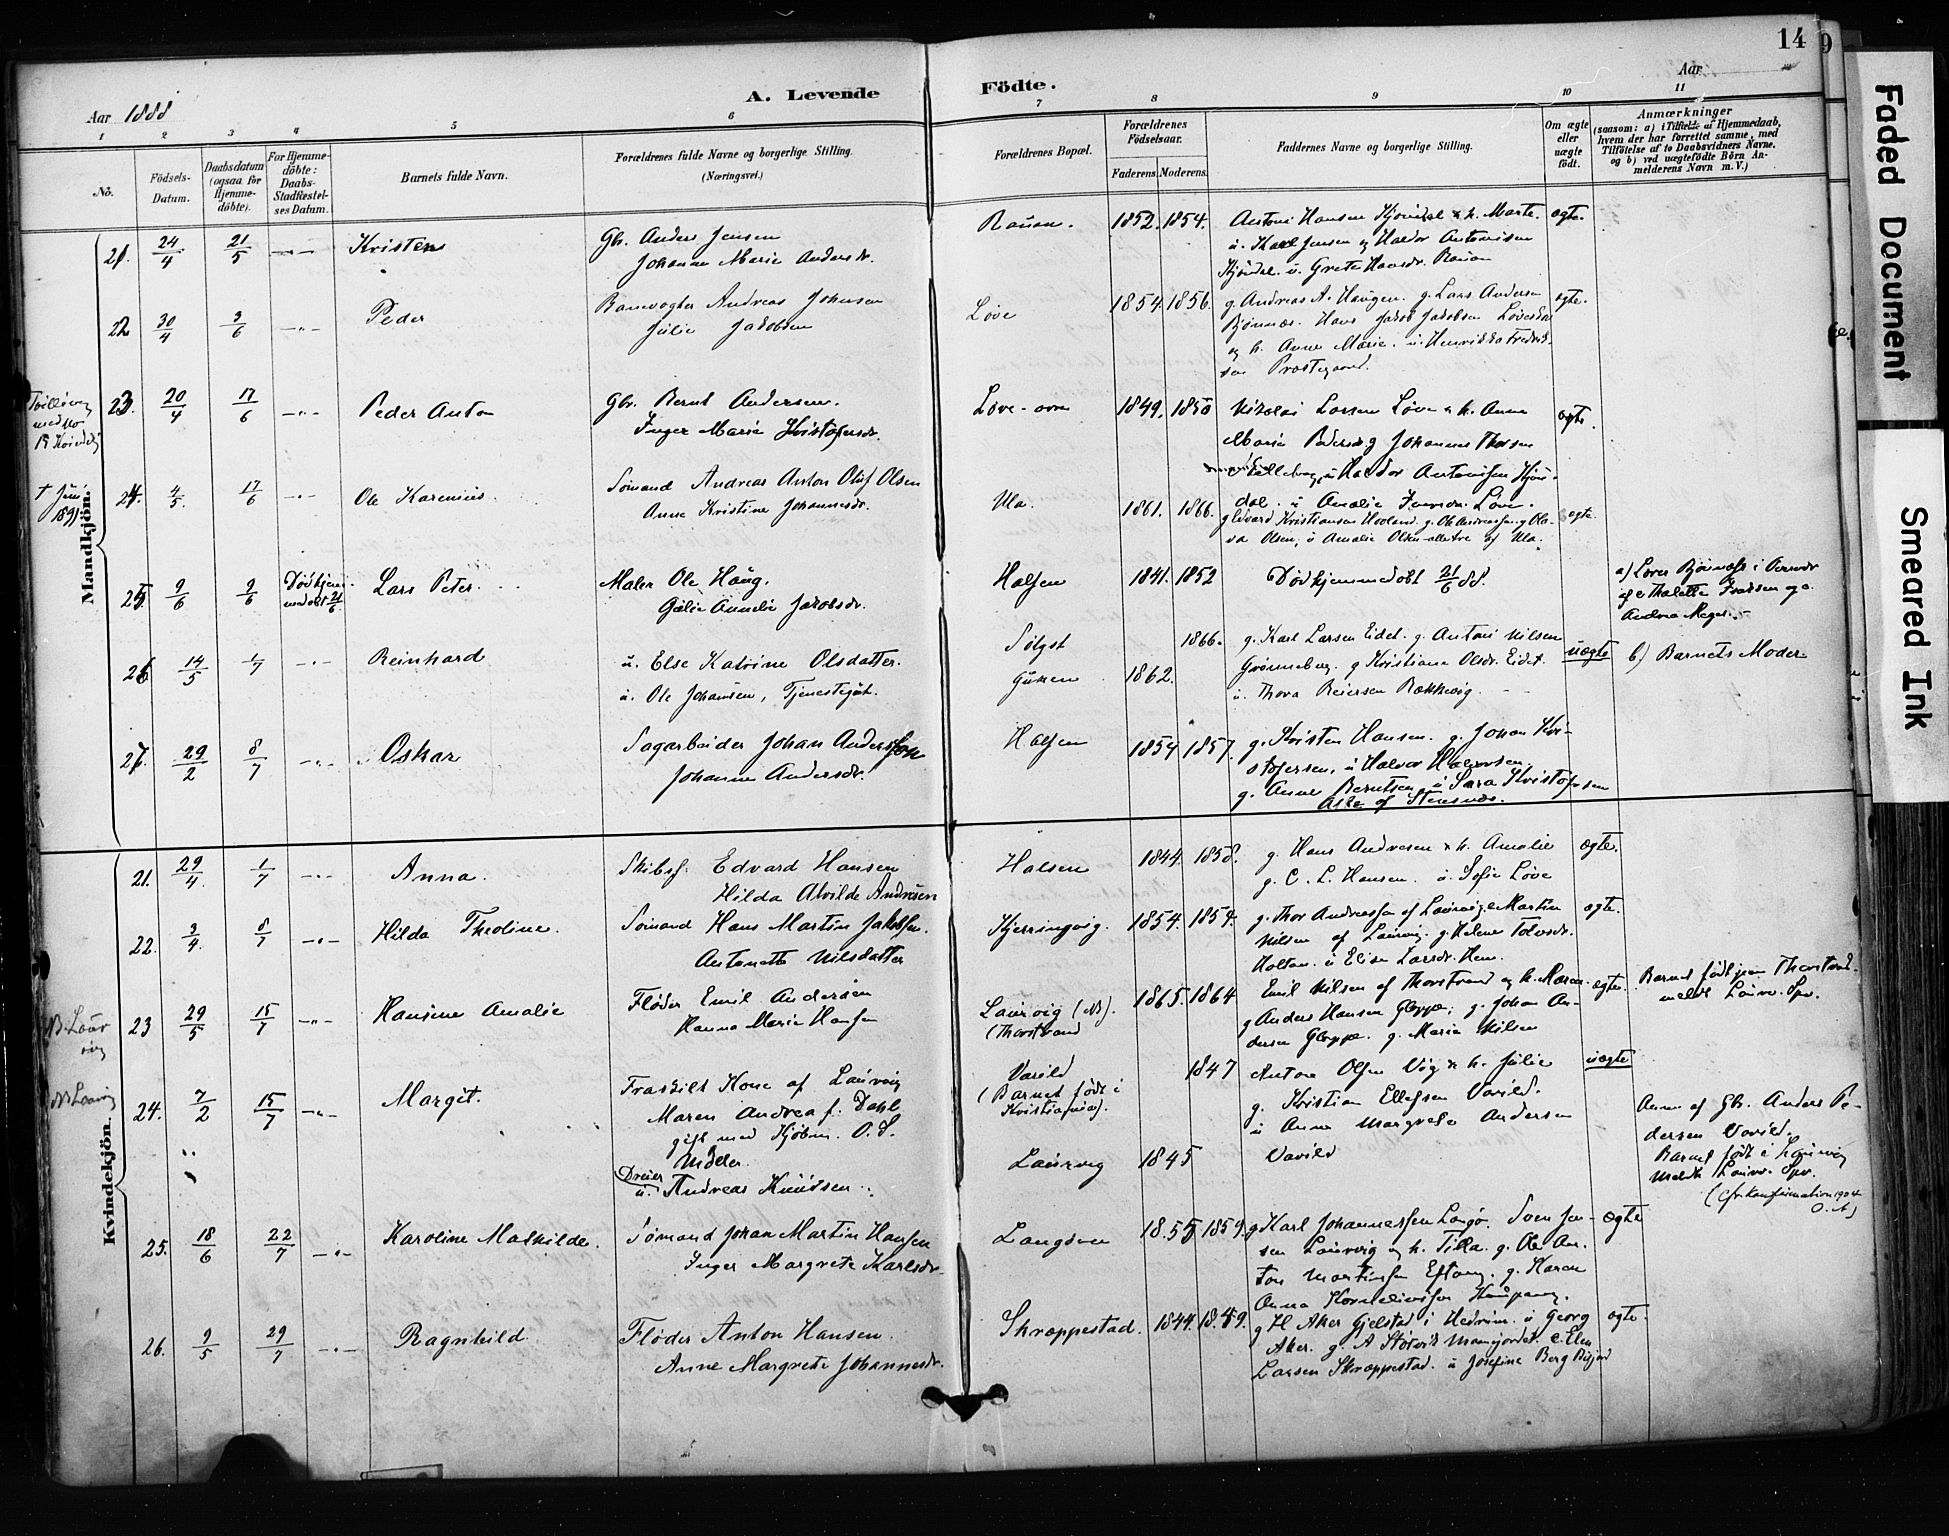 14
9
Faded Document
Smeared Ink
A. Levende Födte.
Aar 1888
Aar
1 2 3 4 5 6 7 8 9 10 11
No.
Födsels-
Datum.
Daabsdatum
(ogsaa for
Hjemme-
döbte).
For Hjemme-
döbte:
Daabs-
Stadfæstel-
ses Datum.
Barnets fulde Navn.
Forældrenes fulde Navne og borgerlige Stilling.
(Næringsvei.)
Forældrenes Bopæl.
Forældrenes
Födselsaar.
Faderens. Moderens.
Faddernes Navne og borgerlige Stilling.
Om ægte
eller
uægte
födt.
Anmærkninger
(saasom: a) i Tilfælde af Hjemmedaab,
hvem der har forrettet samme, med
Tilföielse af to Daabsvidners Navne,
og b) ved uægtefödte Börn An-
melderens Navn m. V.)
Mandkjön.
21. 24/4 21/5 -"- Kristen
Gbr. Anders Jensen
Johanne Marie Andersdr.
Rauan. 1852. 1854.
Antoni Hansen Kjöndal & h. Marte.
u. Karl Jensen og Haldor Antonisen
Kjöndal. u. Grete Hansdr. Rauan
ægte.
22 30/4 3/6 -"- Peder
Banevogter Andreas Johnsen
Julie Jakobsen
Löve 1854. 1856.
g. Andreas A. Haugen. g. Lars Andersen
Bjönnes. Hans Jakob Jakobsen
og h. Anne Marie. u. Henrikka Fredrik-
sen Prestegaard.
ægte.
Tvilling
med No
19 Kvindekj
23. 20/4 17/6 -"- Peder Anton
Gbr. Bernt Andersen.
Inger Marie Kristofersdr.
Löve-övre 1849. 1850
Nikolai Larsen Löve & h. Anne
Marie Pedersdr. g Johannes Thorsen
u. Haldor Antonisen Kjön-
dal. u Amalie Löve.
ægte.
† Juni
1891
24. 4/5. 17/6 -"- Ole Karenius.
Sömand Andreas Anton Oluf Olsen
Anne Kristine Johannesdr.
Ula. 1861. 1866.
g Edvard Kristiansen Hovland. g. Ole Andreassen. g Ola-
va Olsen, u Amalie Olsen alle tre af Ula.
ægte.
25. 9/6 9/6 Död hjem-
medöbt 21/6
Lars Peter.
Maler Ole Haug.
Annelie Jakobsdr.
Halsen 1841. 1852
Död hjemmedöbt 21/6 88.
a) Lars Bjönnes i
af Thalette og
Andrea
26 14/5 1/7 -"- Reinhard
u. Else Katrine Olsdatter.
u. Ole Johansen, Tjenestegut.
1866.
1862.
g. Karl Larsen Eidet. g. Antoni Nilsen
Grönneberg. g Kristiane Olsdr. Eidet.
u. Thora Reiersen Rækkevig.
uægte
b) Barnets Moder
27. 29/2 8/7 -"- Oskar
Sagarbeider Johan Anderssen
Johanne Andersdr.
Halsen 1854 1857.
g. Kristen Hansen. g. Johan Kri-
stofersen. u Halvor Halvorsen.
g. Anne Berntsen. u Sara Kristofersen
Alle af Stensnes.
Kvindekjön.
21. 29/4. 1/7 -"- Anna.
Skibsf. Edvard Hansen
Hilda Alvilde Andresen
Halsen 1844. 1858.
g. Hans Andresen & h. Amalie
g. C. L. Hansen. u. Sofie Löve
ægte.
22. 3/4. 8/7 -"- Hilda Theoline.
Sömand Hans Martin Jakobsen.
Antonette Nilsdatter
Kjerringvig. 1854. 1854.
g. Thor Andreassen af Laurvig. Martin
Nilsen af Laurvig. g. Helene
Holtan. u Elise Larsdr. Hem.
ægte.
NB. Laur
vig
23 29/5 15/7 -"- Hansine Amalie
Flöder Emil Andersen
Hanna Marie Hansen
Laurvig (NB).
(Thorstrand
1865. 1864
Emil Nilsen af Thorstrand og h. Maren
g Anders Hansen Gloppe; g. Johan An-
dersen Gloppe. g. Maria Nilsen
ægte.
Barnet födt paa Thorstrand
meldt Laurv. Spr.
NB Laurvig
24. 7/2 15/7 -"- Margit.
Fraskilt Kone af Laurvig
Maren Andrea f. Dahl
gift med Kjöbm. O. S.
Möller.
Dreier
u. Andreas Knudsen.
Varild
(Barnet födt i
Kristiania).
Laurvig 1845
1847
Anton Olsen Vög & h. Julie
g. Kristian Ellefsen Varild.
u Anna Margrete Andersen
Varild
uægte
Anm. af Gbr. Anders Pe-
dersen Varild.
Barnet födt i Laurvig
meldt Laurv. Spr.
(cfr. Konfirmation 1904
O. A)
25. 18/6 22/7 -"- Karoline Mathilde.
Sömand Johan Martin Hansen
Inger Margrete Karlsdr.
Langöen 1855 1859.
g Karl Johannessen Langö. Sven Jen-
sen Laurvig og h. Tilla. g. Ole An-
ton Martinsen Eftang. g. Karen
Anna Korneliussen Kaupang.
ægte
26. 9/5 29/7 -"- Ragnhild
Flöder Anton Hansen.
Anne Margrete Johannesdr.
Skræppestad. 1844. 1849.
g H Aker Gjelstad i Hedrum. u Georg
Aker. g. A Störvik e. Elen
Larsen Skræppestad. u Josefine Berg
ægte.